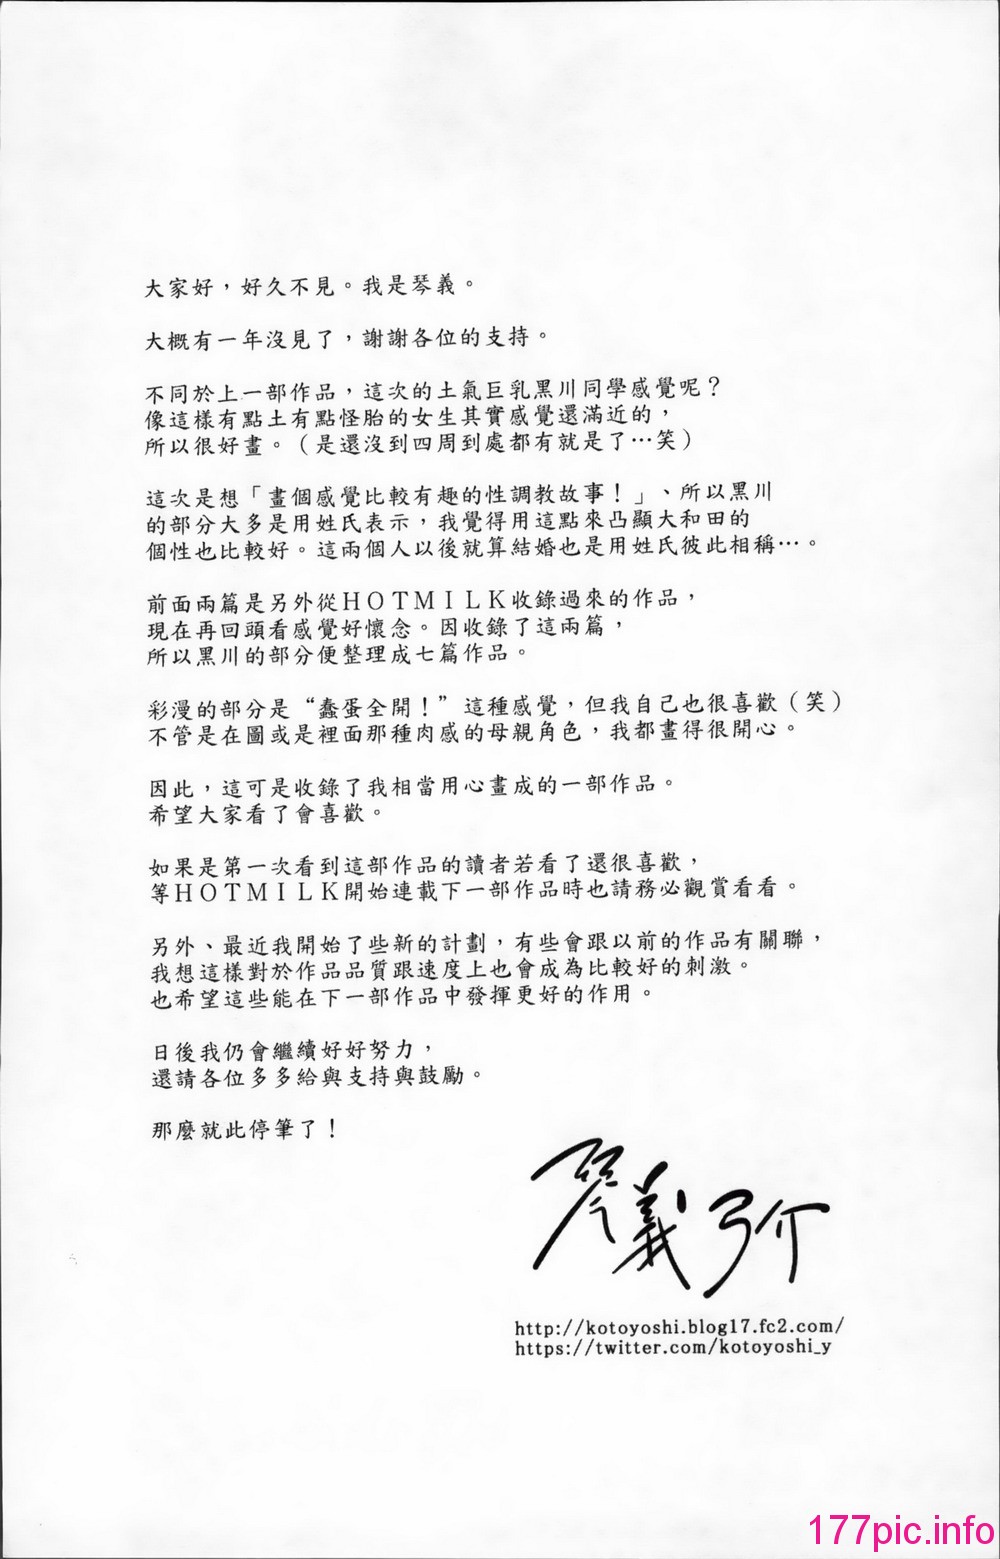 大家好，好久不見。我是琴義。
大概有一年沒見了，謝謝各位的支持。
不同於上一部作品，這次的土氣巨乳黑川同學感覺呢？
像這樣有點土有點怪胎的女生其實感覺還滿近的，
所以很好畫。（是還沒到四周到處都有就是了…笑）
這次是想「畫個感覺比較有趣的性調教故事！」、所以黑川
的部分大多是用姓氏表示，我覺得用這點來凸顯大和田的
個性也比較好。這兩個人以後就算結婚也是用姓氏彼此相稱…。
前面兩篇是另外從HOTMILK收錄過來的作品，
現在再回頭看感覺好懷念。因收錄了這兩篇，
所以黑川的部分便整理成七篇作品。
彩漫的部分是“蠢蛋全開！”這種感覺，但我自己也很喜歡（笑）
不管是在圖或是裡面那種肉感的母親角色，我都畫得很開心。
因此，這可是收錄了我相當用心畫成的一部作品。
希望大家看了會喜歡。
如果是第一次看到這部作品的讀者若看了還很喜歡，
等HOTMILK開始連載下一部作品時也請務必觀賞看看。
另外、最近我開始了些新的計劃，有些會跟以前的作品有關聯，
我想這樣對於作品品質跟速度上也會成為比較好的刺激。
也希望這些能在下一部作品中發揮更好的作用。
日後我仍會繼續好好努力，
還請各位多多給與支持與鼓勵。
那麼就此停筆了！
琴義弓介
http://kotoyoshi.blog17.fc2.com/
https://twitter.com/kotoyoshi_y
177pic.info